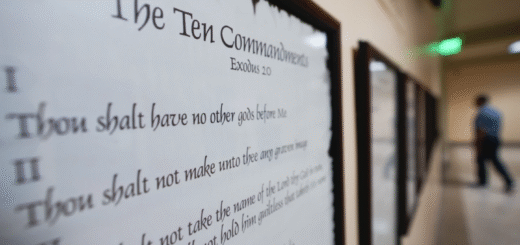 The Ten Commandments
Exodus 20
I
Thou shalt have no other gods before Me
II
Thou shalt not make unto thee any graven image
shalt not take the name of the Lord thy God in vain
not hold him guiltless that